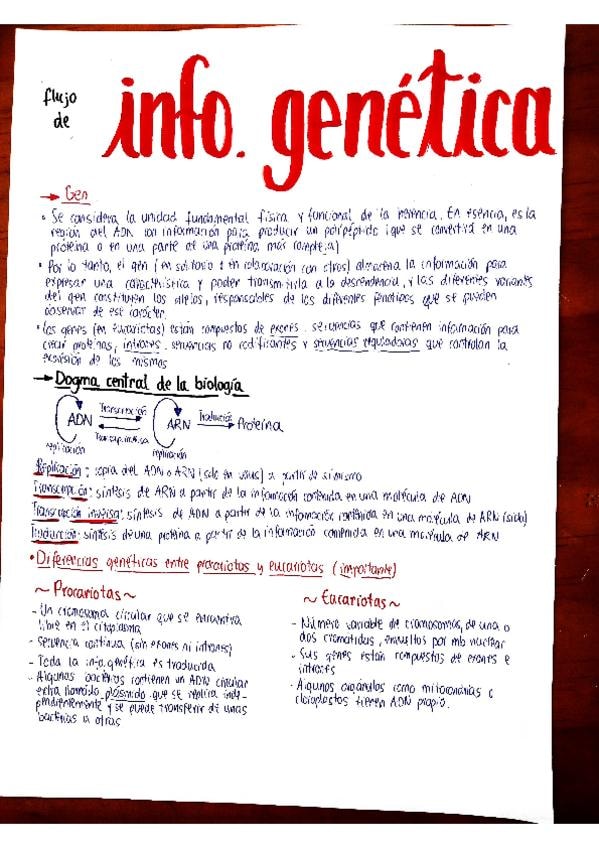 flujo
de
info. genética
→ Gen
• Se considera la unidad fundamental física y funcional de la herencia. En esencia, es la
región del ADN con información para producir un polipéptido (que se convertirá en una
proteína o en una parte de una proteína más compleja)
• Por lo tanto, el gen (en solitario o en colaboración con otros) almacena la información para
expresar una característica y poder transmitirla a la descendencia, y las diferentes variantes
del gen constituyen los alelos, responsables de los diferentes fenotipos que se pueden
observar de ese carácter.
• Los genes (en eucariotas) están compuestos de exones, secuencias que contienen información para
crear proteínas, intrones, secuencias no codificantes y secuencias reguladoras que controlan la
expresión de los mismos
→ Dogma central de la biología
ADN Transcripción ARN Traducción Proteína
Transcrip. inversa
replicación replicación
Replicación: copia del ADN o ARN (solo en virus) a partir de si mismo
Transcripción: síntesis de ARN a partir de la información contenida en una molécula de ADN
Transcripción inversa: síntesis de ADN a partir de la información contenida en una molécula de ARN
Traducción: síntesis de una proteína a partir de la información contenida en una molécula de ARN
• Diferencias genéticas entre procariotas y eucariotas (importante)
~ Procariotas ~
- Un cromosoma circular que se encuentra
libre en el citoplasma
- Secuencia continua (sin exones ni intrones)
- Toda la info. genética es traducida
- Algunas bacterias contienen un ADN circular
extra llamado plásmido que se replica inde-
pendientemente y se puede transferir de unas
bacterias a otras
~ Eucariotas ~
- Número variable de cromosomas, de una o
dos cromátidas, envueltos por mb nuclear
- Sus genes están compuestos de exones e
intrones
- Algunos orgánulos como mitocondrias o
cloroplastos tienen ADN propio.